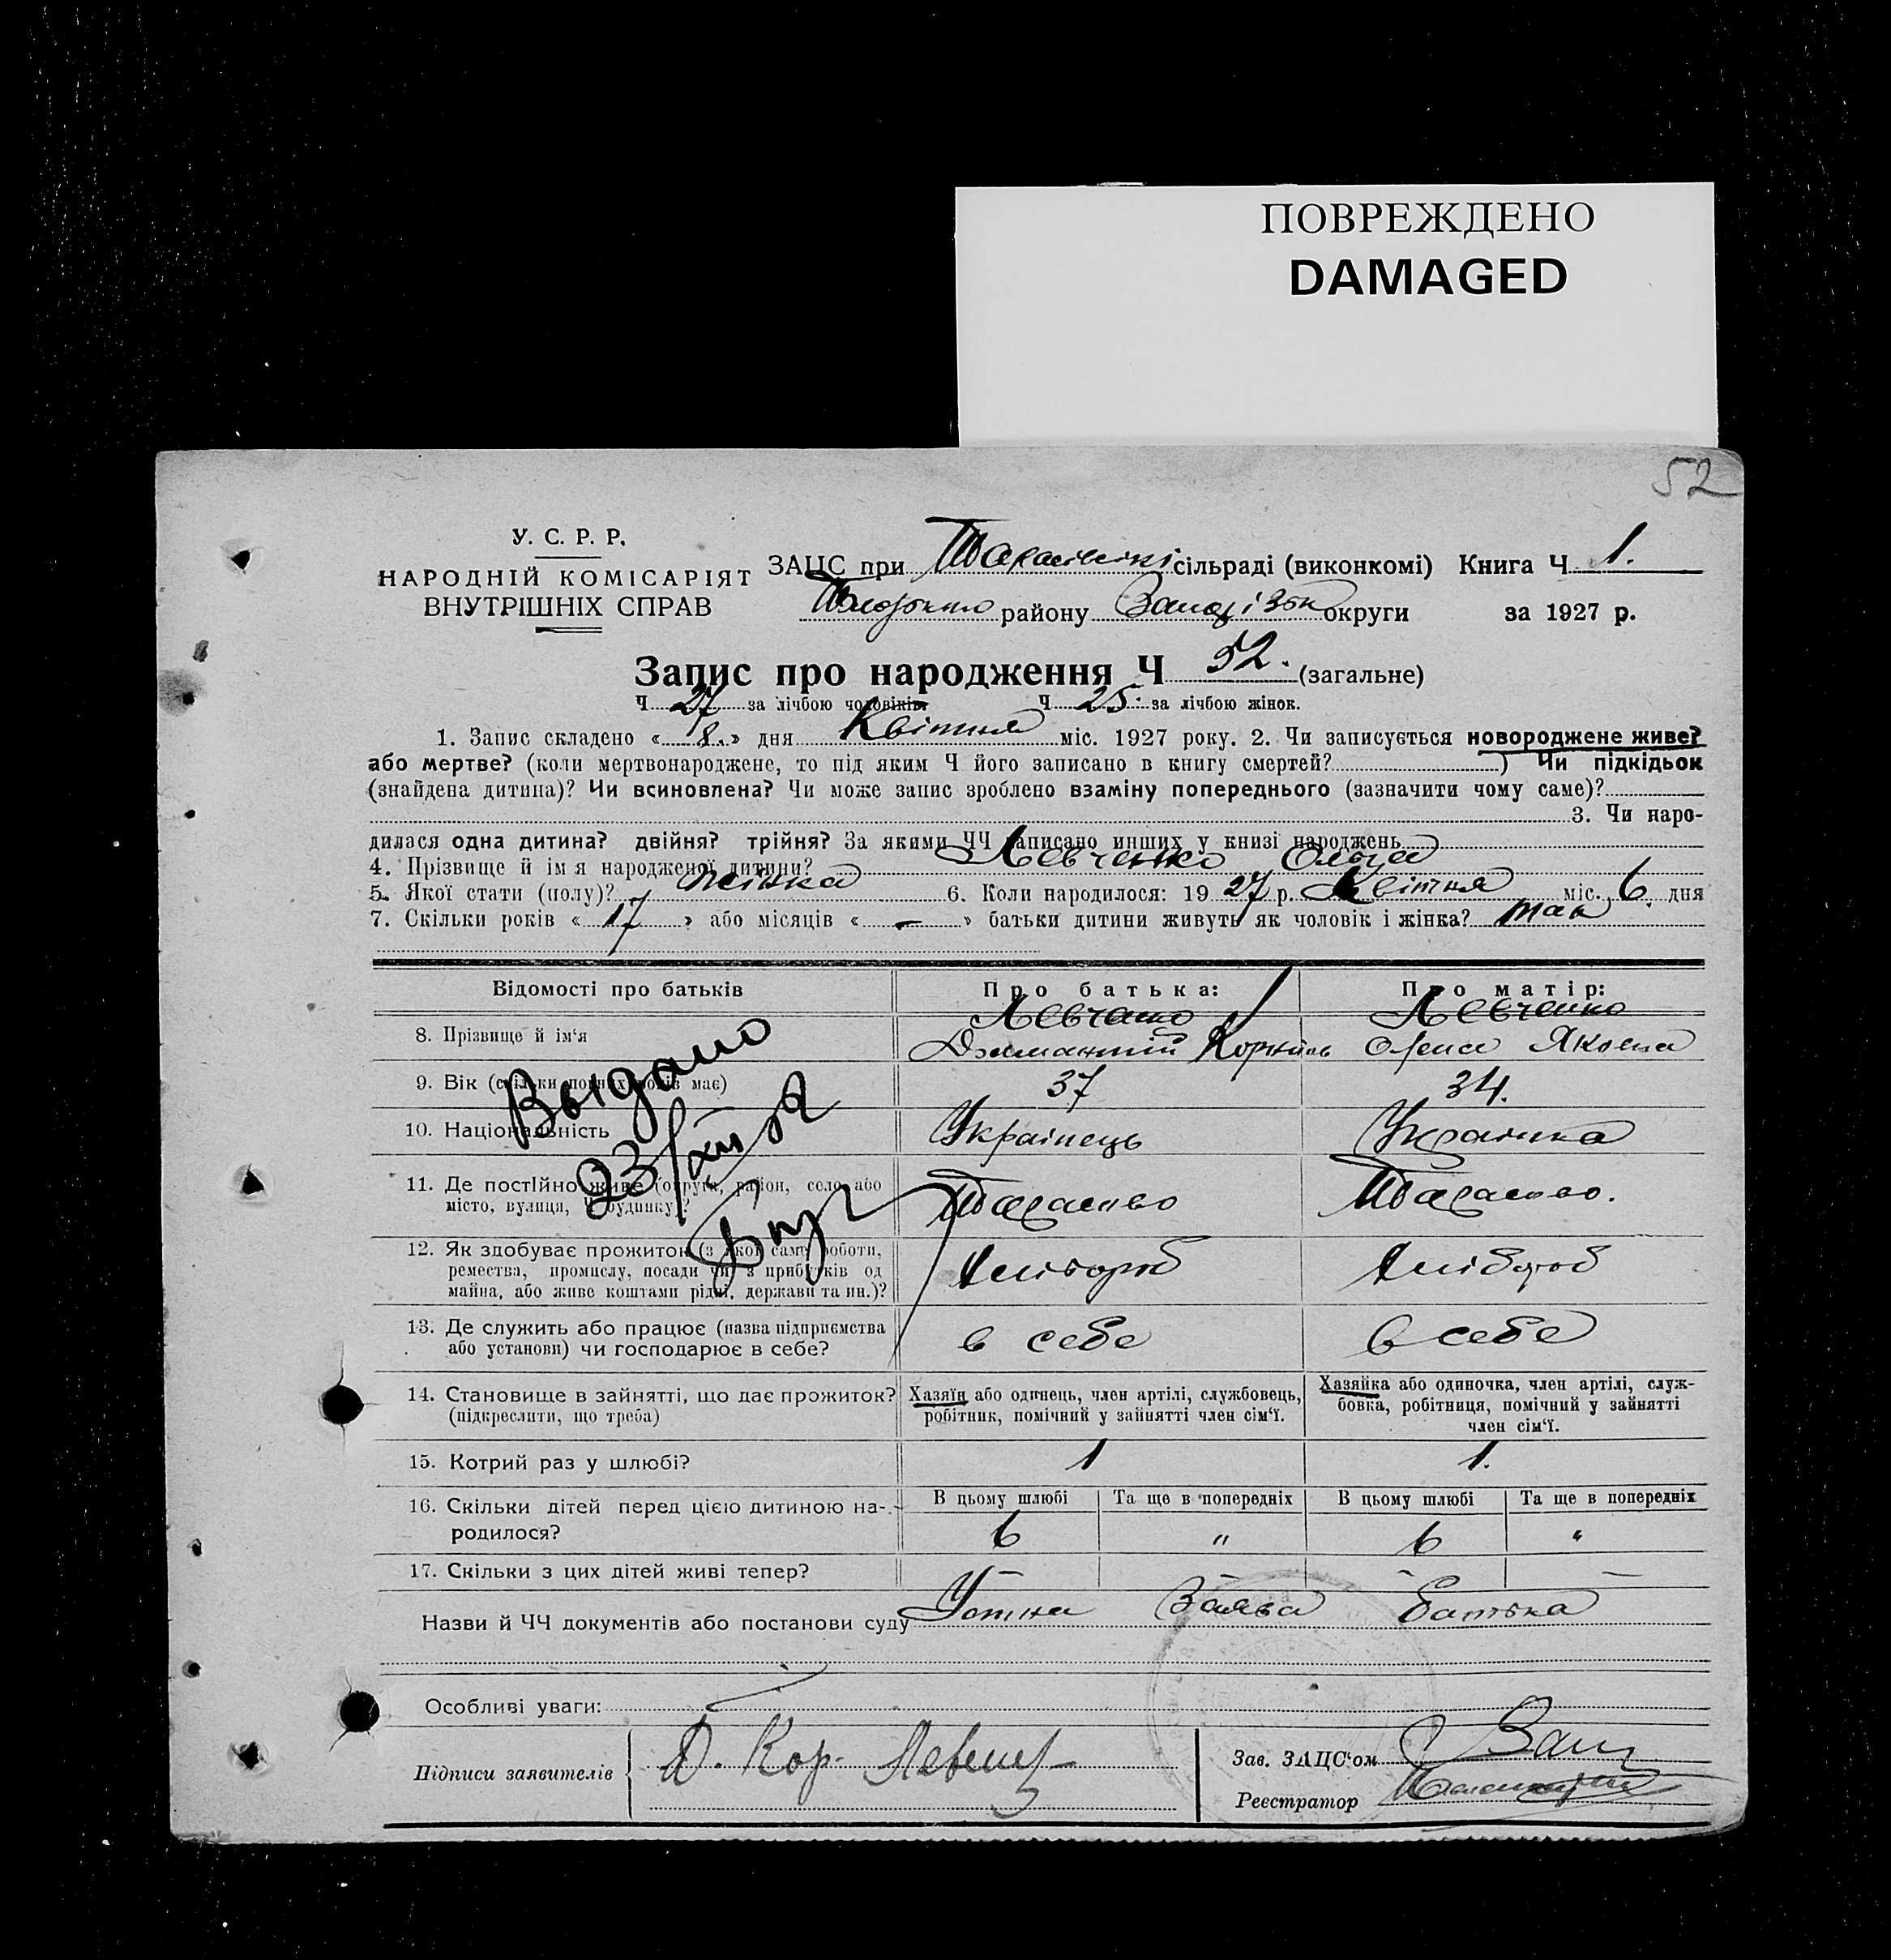 ПОВРЕЖДЕНО
DAMAGED
52
У. С. Р. Р.
НАРОДНІЙ КОМІСАРІЯТ
ВНУТРІШНІХ СПРАВ
ЗАЦС при сільраді (виконкомі) Книга Ч 1.
району округи за 1927 р.
Запис про народження Ч 52. (загальне)
Ч 27 за лічбою чоловіків. Ч 25. за лічбою жінок.
1. Запис складено « 8. » дня Квітня міс. 1927 року. 2. Чи записується новороджене живе?
або мертве? (коли мертвонароджене, то під яким Ч його записано в книгу смертей? ) Чи підкідьок
(знайдена дитина)? Чи всиновлена? Чи може запис зроблено взаміну попереднього (зазначити чому саме)?
3. Чи наро-
дилася одна дитина? двійня? трійня? За якими ЧЧ записано инших у книзі народжень
4. Прізвище й ім'я народженої дитини? Левченко Ольга
5. Якої стати (полу)? жінка 6. Коли народилося: 19 27 р. Квітня міс. 6. дня
7. Скільки років « 17 » або місяців « — » батьки дитини живуть як чоловік і жінка? так
Відомості про батьків Про батька: Про матір:
8. Прізвище й ім'я Левченко Левченко
9. Вік (скільки повних років має) 37 34.
10. Національність Українець Українка
11. Де постійно живе (округа, район, село або
місто, вулиця, Ч будинку)?
12. Як здобуває прожиток (з якої саме роботи,
ремества, промислу, посади чи з прибутків од
майна, або живе коштами рідні, держави та ин.)? Хлібороб Хлібороб
13. Де служить або працює (назва підприємства
або установи) чи господарює в себе? в себе в себе
14. Становище в зайнятті, що дає прожиток?
(підкреслити, що треба)
Хазяїн або одинець, член артілі, службовець,
робітник, помічний у зайнятті член сім'ї.
Хазяйка або одиночка, член артілі, служ-
бовка, робітниця, помічний у зайнятті
член сім'ї.
15. Котрий раз у шлюбі? 1 1.
16. Скільки дітей перед цією дитиною на-
родилося?
В цьому шлюбі Та ще в попередніх В цьому шлюбі Та ще в попередніх
6 " 6 "
17. Скільки з цих дітей живі тепер? — — — —
Назви й ЧЧ документів або постанови суду Устна Заява батька
Особливі уваги:
Підписи заявителів Д. Кор.
Зав. ЗАЦС'ом
Реєстратор
Выдано
23/XII